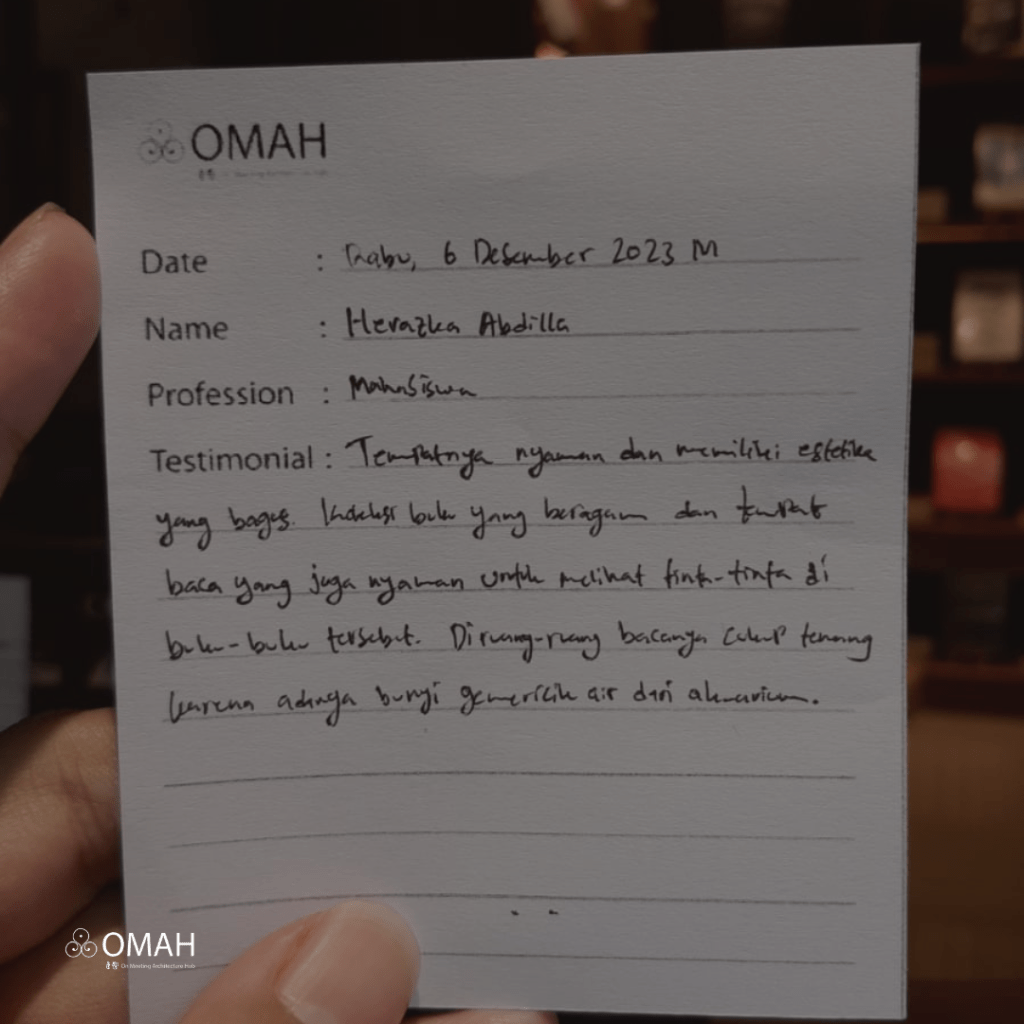 OMAH
Date : Rabu, 6 Desember 2023 M
Name : Herazka Abdilla
Profession : Mahasiswa
Testimonial : Tempatnya nyaman dan memiliki estetika
yang bagus. Koleksi buku yang beragam dan tempat
baca yang juga nyaman untuk melihat tinta-tinta di
buku-buku tersebut. Diruang-ruang bacanya cukup tenang
karena adanya bunyi gemericik air dari akuarium.
OMAH
On Meeting Architecture Hub